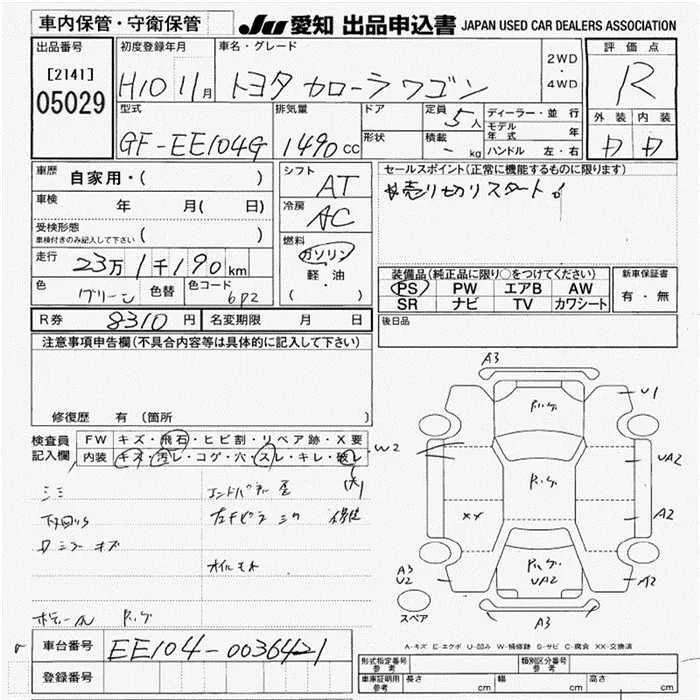 車内保管・守衛保管
JU 愛知 出品申込書 JAPAN USED CAR DEALERS ASSOCIATION
出品番号
[2141]
05029
初度登録年月
H10 11月
車名・グレード
トヨタ カローラ ワゴン
2WD
・
4WD
評価点
R
外装 内装
D D
型式
GF-EE104G
排気量
1490 CC
ドア
形状
定員 5人
積載 - kg
ディーラー・並行
モデル年式 年
ハンドル 左・右
車歴 自家用・( )
車検 年 月( 日)
受検形態
車検付きのみ記入して下さい ( )
走行 23万1千190km
色 グリーン 色替 色コード 6P2
シフト AT
冷房 AC
燃料
ガソリン
軽・油
( )
セールスポイント(正常に機能するものに限ります)
売り切りスタート
装備品(純正品に限り○をつけてください)
PS PW エアB AW
SR ナビ TV カワシート
新車保証書
有・無
後日品
R券 8310円 名変期限 月 日
注意事項申告欄(不具合内容等は具体的に記入して下さい)
修復歴 有 (箇所 )
検査員記入欄
FW キズ・飛石・ヒビ割・リペア跡・X要
内装 キズ・汚レ・コゲ・穴・スレ・キレ・破レ
(大)
シミ
エンドパネル
下回りS
キズ
オイルモレ
A3
U1
W2
UA2
XX
A2
A3
U2
UA2
A2
A3
スペア
A-キズ E-エクボ U-凹み W-補修跡 S-サビ C-腐食 XX-交換済
車台番号 EE104-0036421
登録番号
型式指定番号
参考
類別区分番号
参考
車庫証明用
参考
長さ cm 幅 cm 高さ cm